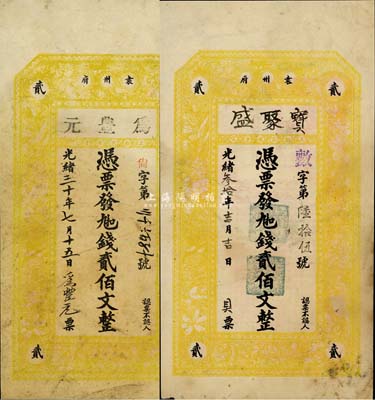 袁州府
貳
貳
為豐元
字第
號
憑票發九他錢貳佰文整
光緒三十年七月十五日為豐元票
認票不認人
貳
貳
袁州府
貳
貳
寶聚盛
數字第陸拾伍號
憑票發九他錢貳佰文整
光緒叁拾年吉月吉日
具票
認票不認人
貳
貳
上海陽明拍